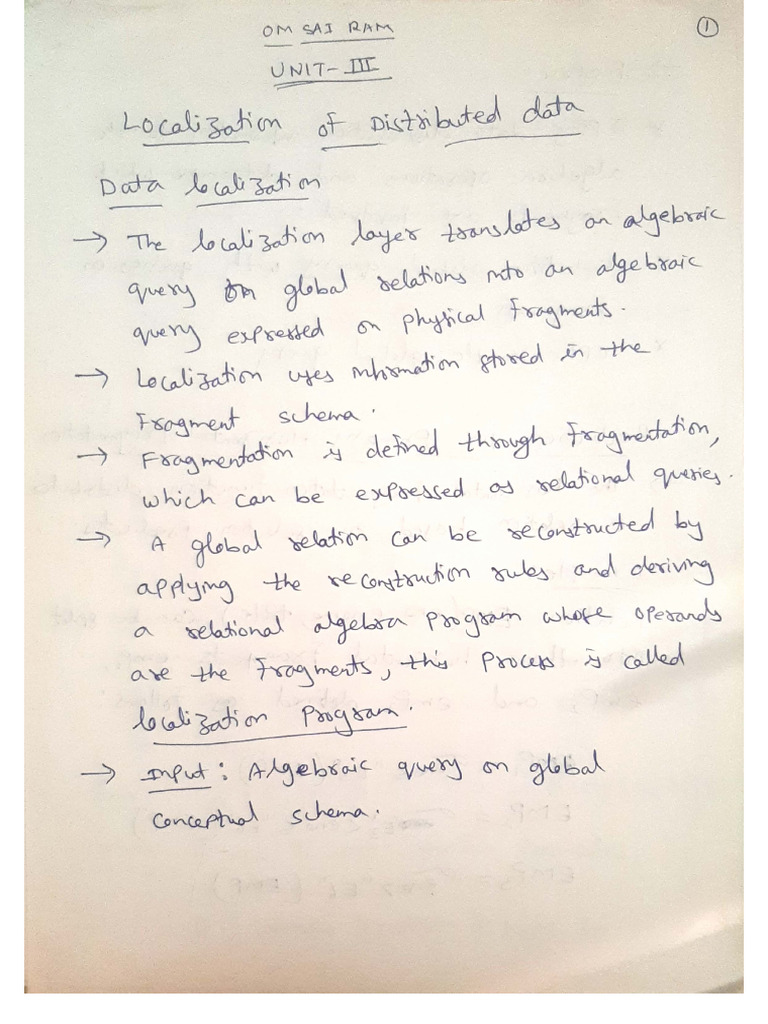 OM SAI RAM
1
UNIT-III
Localization of Distributed data
Data localization
→ The localization layer translates an algebraic
query on global relations into an algebraic
query expressed on physical fragments.
→ Localization uses information stored in the
Fragment schema.
→ Fragmentation is defined through fragmentation,
which can be expressed as relational queries.
→ A global relation can be reconstructed by
applying the reconstruction rules and deriving
a relational algebra program whose operands
are the fragments, this process is called
localization Program.
→ Input: Algebraic query on global
conceptual schema.